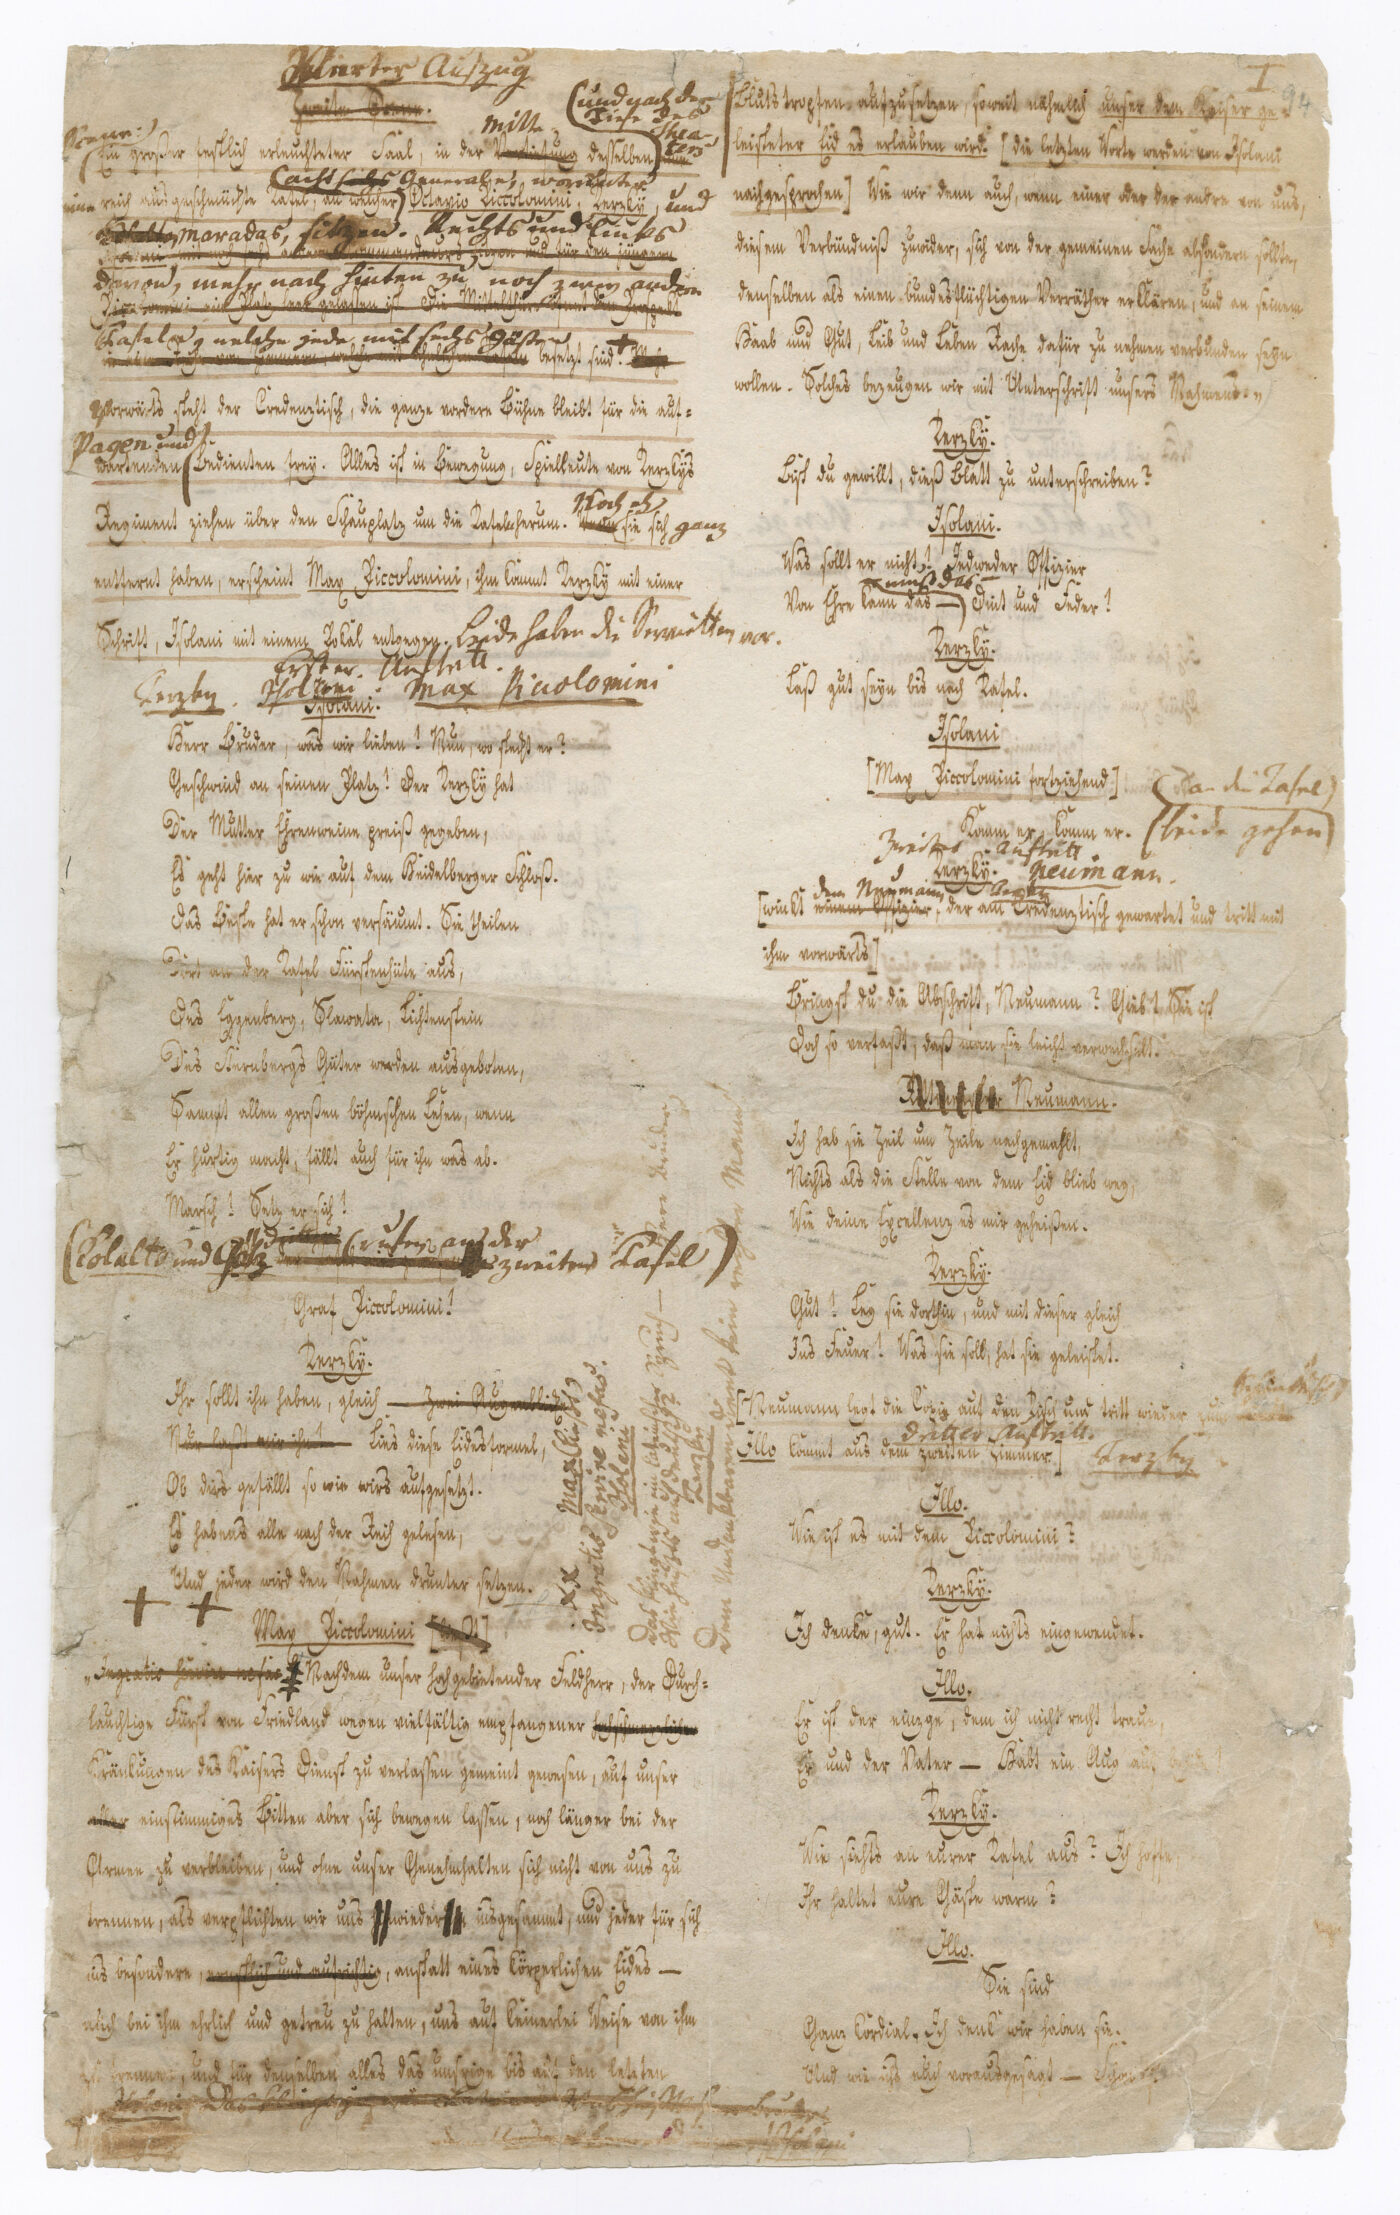 Vierter Aufzug
Zweite Scene.
(und nach der
Tiefe des
Thea-
ters)
Scene:
mitte
Ein großer festlich erleuchteter Saal, in der Vertiefung desselben eine
acht Generale, worunter
reich ausgeschmückte Tafel, an welcher Octavio Piccolomini, Terzky, und
Maradas, sitzen. Rechts und links
davon, mehr nach hinten zu, noch zwey andere
Tafeln, welche jede mit sechs Gästen
besetzt sind.
Vorwärts steht der Credenztisch, die ganze vordere Bühne bleibt für die auf-
Pagen und
wartenden Bedienten frey. Alles ist in Bewegung, Spielleute von Terzkys
Regiment ziehen über den Schauplatz um die Tafel herum. Noch eh sie sich ganz
entfernt haben, erscheint Max Piccolomini, ihm kommt Terzky mit einer
Schrift, Isolani mit einem Pokal entgegen. Beide haben die Servietten vor.
Erster Auftritt.
Terzky. Isolani. Max Piccolomini
Isolani.
Herr Bruder, was wir lieben! Nun, wo steckt er?
Geschwind an seinen Platz! Der Terzky hat
Der Mutter Ehrenweine preiß gegeben,
Es geht hier zu wie auf dem Heidelberger Schloß.
Das Beste hat er schon versäumt. Sie theilen
Dort an der Tafel Fürstenhüte aus,
Des Eggenberg, Slawata, Lichtenstein
Des Sternbergs Güter werden ausgeboten,
Sammt allen großen böhmschen Lehen, wenn
Er hurtig macht, fällt auch für ihn was ab.
Marsch! Setz er sich!
(Kolalto und Götz rufen an der zweiten Tafel)
Graf Piccolomini!
Terzky.
Ihr sollt ihn haben, gleich — Zwei Augenblicke
Nur laßt mir ihn! — Lies diese Eidesformel,
Ob dirs gefällt so wie wirs aufgesetzt.
Es habens alle nach der Reih gelesen,
Und jeder wird den Nahmen drunter setzen.
+ +
Max Piccolomini [liest]
„Ingratis servire nefas" Nachdem unser hochgebietender Feldherr, der Durch-
lauchtige Fürst von Friedland wegen vielfältig empfangener
Kränkungen des Kaisers Dienst zu verlassen gemeint gewesen, auf unser
aller einstimmiges Bitten aber sich bewegen lassen, noch länger bei der
Armee zu verbleiben, und ohne unser Genehmhalten sich nicht von uns zu
trennen, als verpflichten wir uns wieder insgesammt, und jeder für sich
ins besondere, ernstlich und aufrichtig, anstatt eines körperlichen Eides —
auch bei ihm ehrlich und getreu zu halten, uns auf keinerlei Weise von ihm
zu trennen, und für denselben alles das unsrige bis auf den letzten
Isolani
Isolani
xx Max (liest)
Ingratis servire nefas.
Isolani
Das klingt wie ein lateinscher Spruch — Herr Bruder,
Wie heißts auf deutsch?
Terzky
Dem Undankbaren dient kein rechter Mann!
I
94
Blutstropfen aufzusetzen, soweit nähmlich unser dem Kaiser ge-
leisteter Eid es erlauben wird. [die letzten Worte werden von Isolani
nachgesprochen] Wie wir denn auch, wenn einer oder der andre von uns,
diesem Verbündniß zuwider, sich von der gemeinen Sache absondern sollte,
denselben als einen bundesflüchtigen Verräther erklären, und an seinem
Haab und Gut, Leib und Leben Rache dafür zu nehmen verbunden seyn
wollen. Solches bezeugen wir mit Unterschrift unsers Nahmens."
Terzky.
Bist du gewillt, dieß Blatt zu unterschreiben?
Isolani.
Was sollt er nicht! Jedweder Offizier
muß das
Von Ehre kann das — Dint und Feder!
Terzky.
Laß gut seyn bis nach Tafel.
Isolani
[Max Piccolomini fortziehend] (an die Tafel)
Komm er, komm er. (beide gehen)
Zweiter Auftritt
Terzky. Neumann.
dem Neumann
[winkt einem Offizier, der am Credenztisch gewartet und tritt mit
ihm vorwärts]
Bringst du die Abschrift, Neumann? Gieb! Sie ist
Doch so verfaßt, daß man sie leicht verwechselt.
Rittmeister Neumann.
Ich hab sie Zeil um Zeile nachgemahlt,
Nichts als die Stelle von dem Eid blieb weg,
Wie deine Excellenz es mir geheißen.
Terzky.
Gut! Leg sie dorthin, und mit dieser gleich
Ins Feuer! Was sie soll, hat sie geleistet.
[Neumann legt die Copie auf den Tisch und tritt wieder zum
Dritter Auftritt.
Illo kommt aus dem zweiten Zimmer] Terzky
Illo.
Wie ist es mit dem Piccolomini?
Terzky.
Ich denke, gut. Er hat nichts eingewendet.
Illo.
Er ist der einzge, dem ich nicht recht traue,
Er und der Vater — Habt ein Aug auf beide!
Terzky.
Wie siehts an eurer Tafel aus? Ich hoffe,
Ihr haltet eure Gäste warm?
Illo.
Sie sind
Ganz kordial. Ich denk wir haben sie.
Und wie ichs euch vorausgesagt —